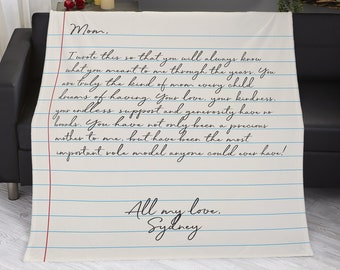 Mom,
I wrote this so that you will always know
what you meant to me through the years. You
are truly the kind of mom every child
dreams of having. Your love, your kindness,
your endless support and generosity have no
bounds. You have not only been a precious
mother to me, but have been the most
important role model anyone could ever have!
All my love,
Sydney